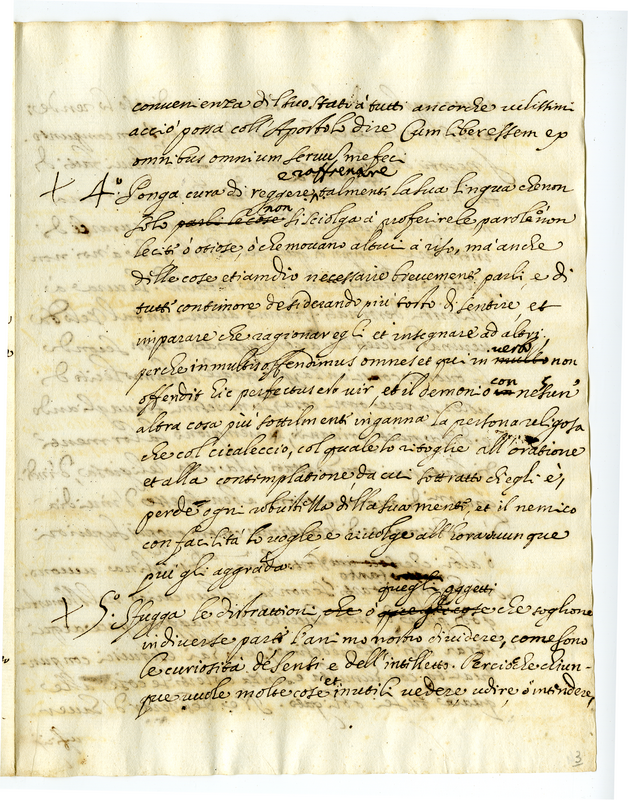 convenienza di suo stati à tutti ancorche vilissimi
acciò possa coll'Apostolo dire Cum liber essem ex
omnibus omnium servus me feci
e raffrenare
+ 4.º Ponga cura di reggere talmenti la sua lingua che non
non
solo parli le cose si sciolga à proferire le parole non
leciti ò otiose, ò che movano altrui à riso, mà anche
delle cose etiamdio necessarie brevementi parli, e di
tutti con timore desiderando più tosto di sentire et
imparare che ragionar egli et insegnare ad altri,
verbo
perche in multis offendimus omnes et qui in multo non
con
offendit hic perfectus est vir, et il demonio in nesun'
altra cosa più sottilmenti inganna la persona religosa
che col cicaleccio, col quale lo ritoglie all'oratione
et alla contemplatione da cui sottratto ch'egli è,
perde ogni robustezza della sua menti, et il nemico
con facilità lo voglie e rivolge all'hora ovunque
più gli aggrada.
quegli oggetti
+ 5.º Sfugga le distrattioni che ò quegle cose che sogliono
in diverse parti l'animo nostro dividere, come sono
le curiosità de senti e dell'intelletto. Percioche chiun-
et
que vuole molte cose inutili vedere udire ò intendere,
3